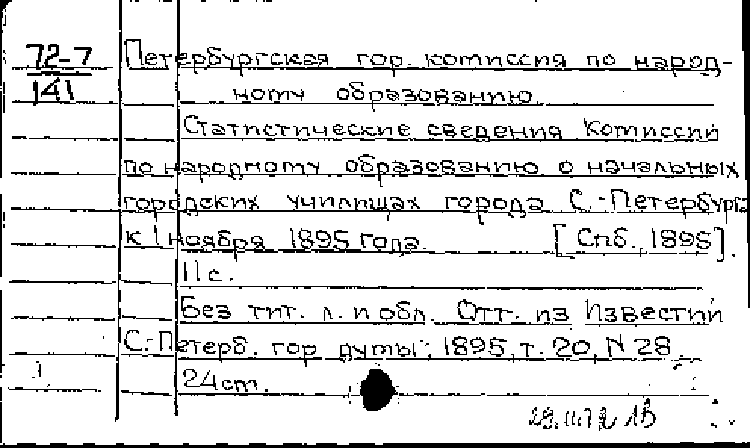 72-7
141
Петербургская гор. комиссия по народ-
ному образованию.
Статистические сведения Комиссии
по народному образованию о начальных
городских училищах города С.-Петербурга
к 1 ноября 1895 года. [Спб., 1895].
11 с.
Без тит. л. и обл. Отт. из Известий
С.-Петерб. гор. думы", 1895, т. 20, N 28.
24 ст.